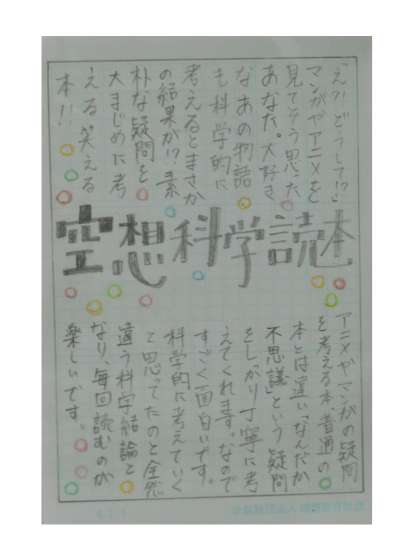 「え?!どうして!?」
マンガやアニメを
見てそう思った
あなた。大好き
なあの物語
も科学的に
考えるとまさか
の結果が!?素
朴な疑問を
大まじめに考
える、笑える
本!!
空想科学読本
アニメやマンガの疑問
を考える本。普通の
本とは違い「なんだか
不思議」という疑問
をしっかり丁寧に考
えてくれます。なので
すごく面白いです。
科学的に考えていく
と思ってたのと全然
違う科学結論と
なり、毎回読むのが
楽しいです。
公益財団法人